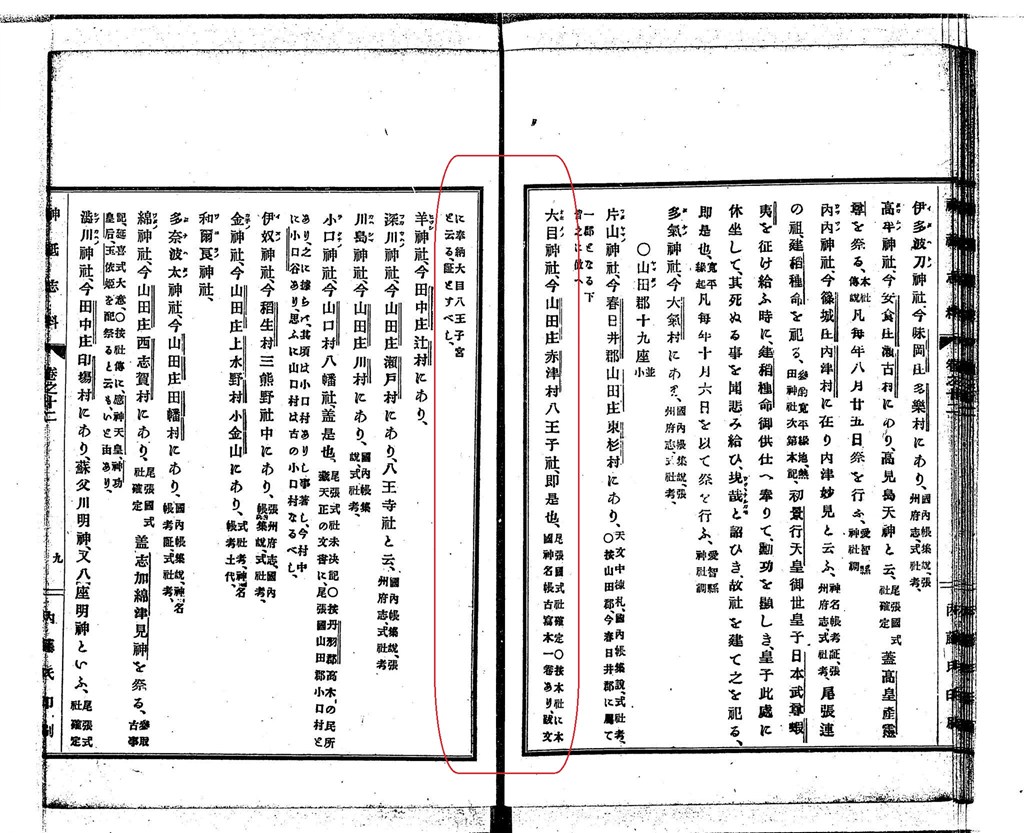 伊多波刀神社、今味岡庄多樂村にあり、國內帳集說、張州府志、式社考
高牟神社、今安食庄瀨古村にあり高見島天神と云、尾張國式社確定 蓋高皇產靈
尊を祭る、本社傳說 凡每年八月廿五日祭を行ふ、愛智縣神社調
內內神社、今篠城庄內津村に在り內津妙見と云ふ、神名帳考証、張州府志、式社考、尾張連
の祖、建稻種命を祀る、參酌寬平緣起、熱田神社次第本記、初景行天皇御世皇子日本武尊蝦
夷を征け給ふ時に、建稻種命御供仕へ奉りて、勳功を顯しき、皇子此處に
休坐して、其死ぬる事を聞悲み給ひ、現哉と詔ひき、故社を建て之を祀る、
即是也、寬平緣起 凡每年十月六日を以て祭を行ふ、愛智縣神社調
多氣神社、今大氣村にあり、國內帳集說、張州府志、式社考、
○山田郡十九座 並小
片山神社、今春日井郡山田庄東杉村にあり、天文中棟札、國內帳集說、式社考、○按山田郡、今春日井郡に屬て
一郡となる下皆之に倣へ
大目神社、今山田庄赤津村八王子社、即是也、尾張國式社確定○按本社に本國神名帳古寫本一卷あり、跋文
に奉納大目八王子宮と云る、証とすべし、
羊神社、今田中庄辻村にあり、
深川神社、今山田庄瀨戶村にあり、八王寺社と云、國內帳集說、張州府志、式社考
川島神社、今山田庄川村にあり、國內帳集說、式社考、
小口神社、今山口村八幡社蓋是也、尾張式社未決記○按丹羽郡高木の民所藏天正の文書に、尾張國山田郡小口村と
あり、之に據らば、其頃は小口村ありし事著し、今村中に小口谷あり、思ふに山口村は古の小口村なるべし、
伊奴神社、今稻生村三熊野社中にあり、張州府志、國內帳集說、式社考、
金神社、今山田庄上水野村小金山にあり、式社考、神名帳考土代、
和爾良神社、
多奈波太神社、今山田庄田幡村にあり、國內帳集說、神名帳考証、式社考、
綿神社、今山田庄西志賀村にあり、尾張國式社確定 蓋志加綿津見神を祭る、參取古事
記、延喜式大意、○按社傳に、應神天皇、神功皇后、玉依姬を配祭ると云もいと由あり、
澁川神社、今田中庄印場村にあり、蘇父川明神、又八座明神といふ、尾張式社確定
神祇志料
卷之十二
九
內藤氏印刷